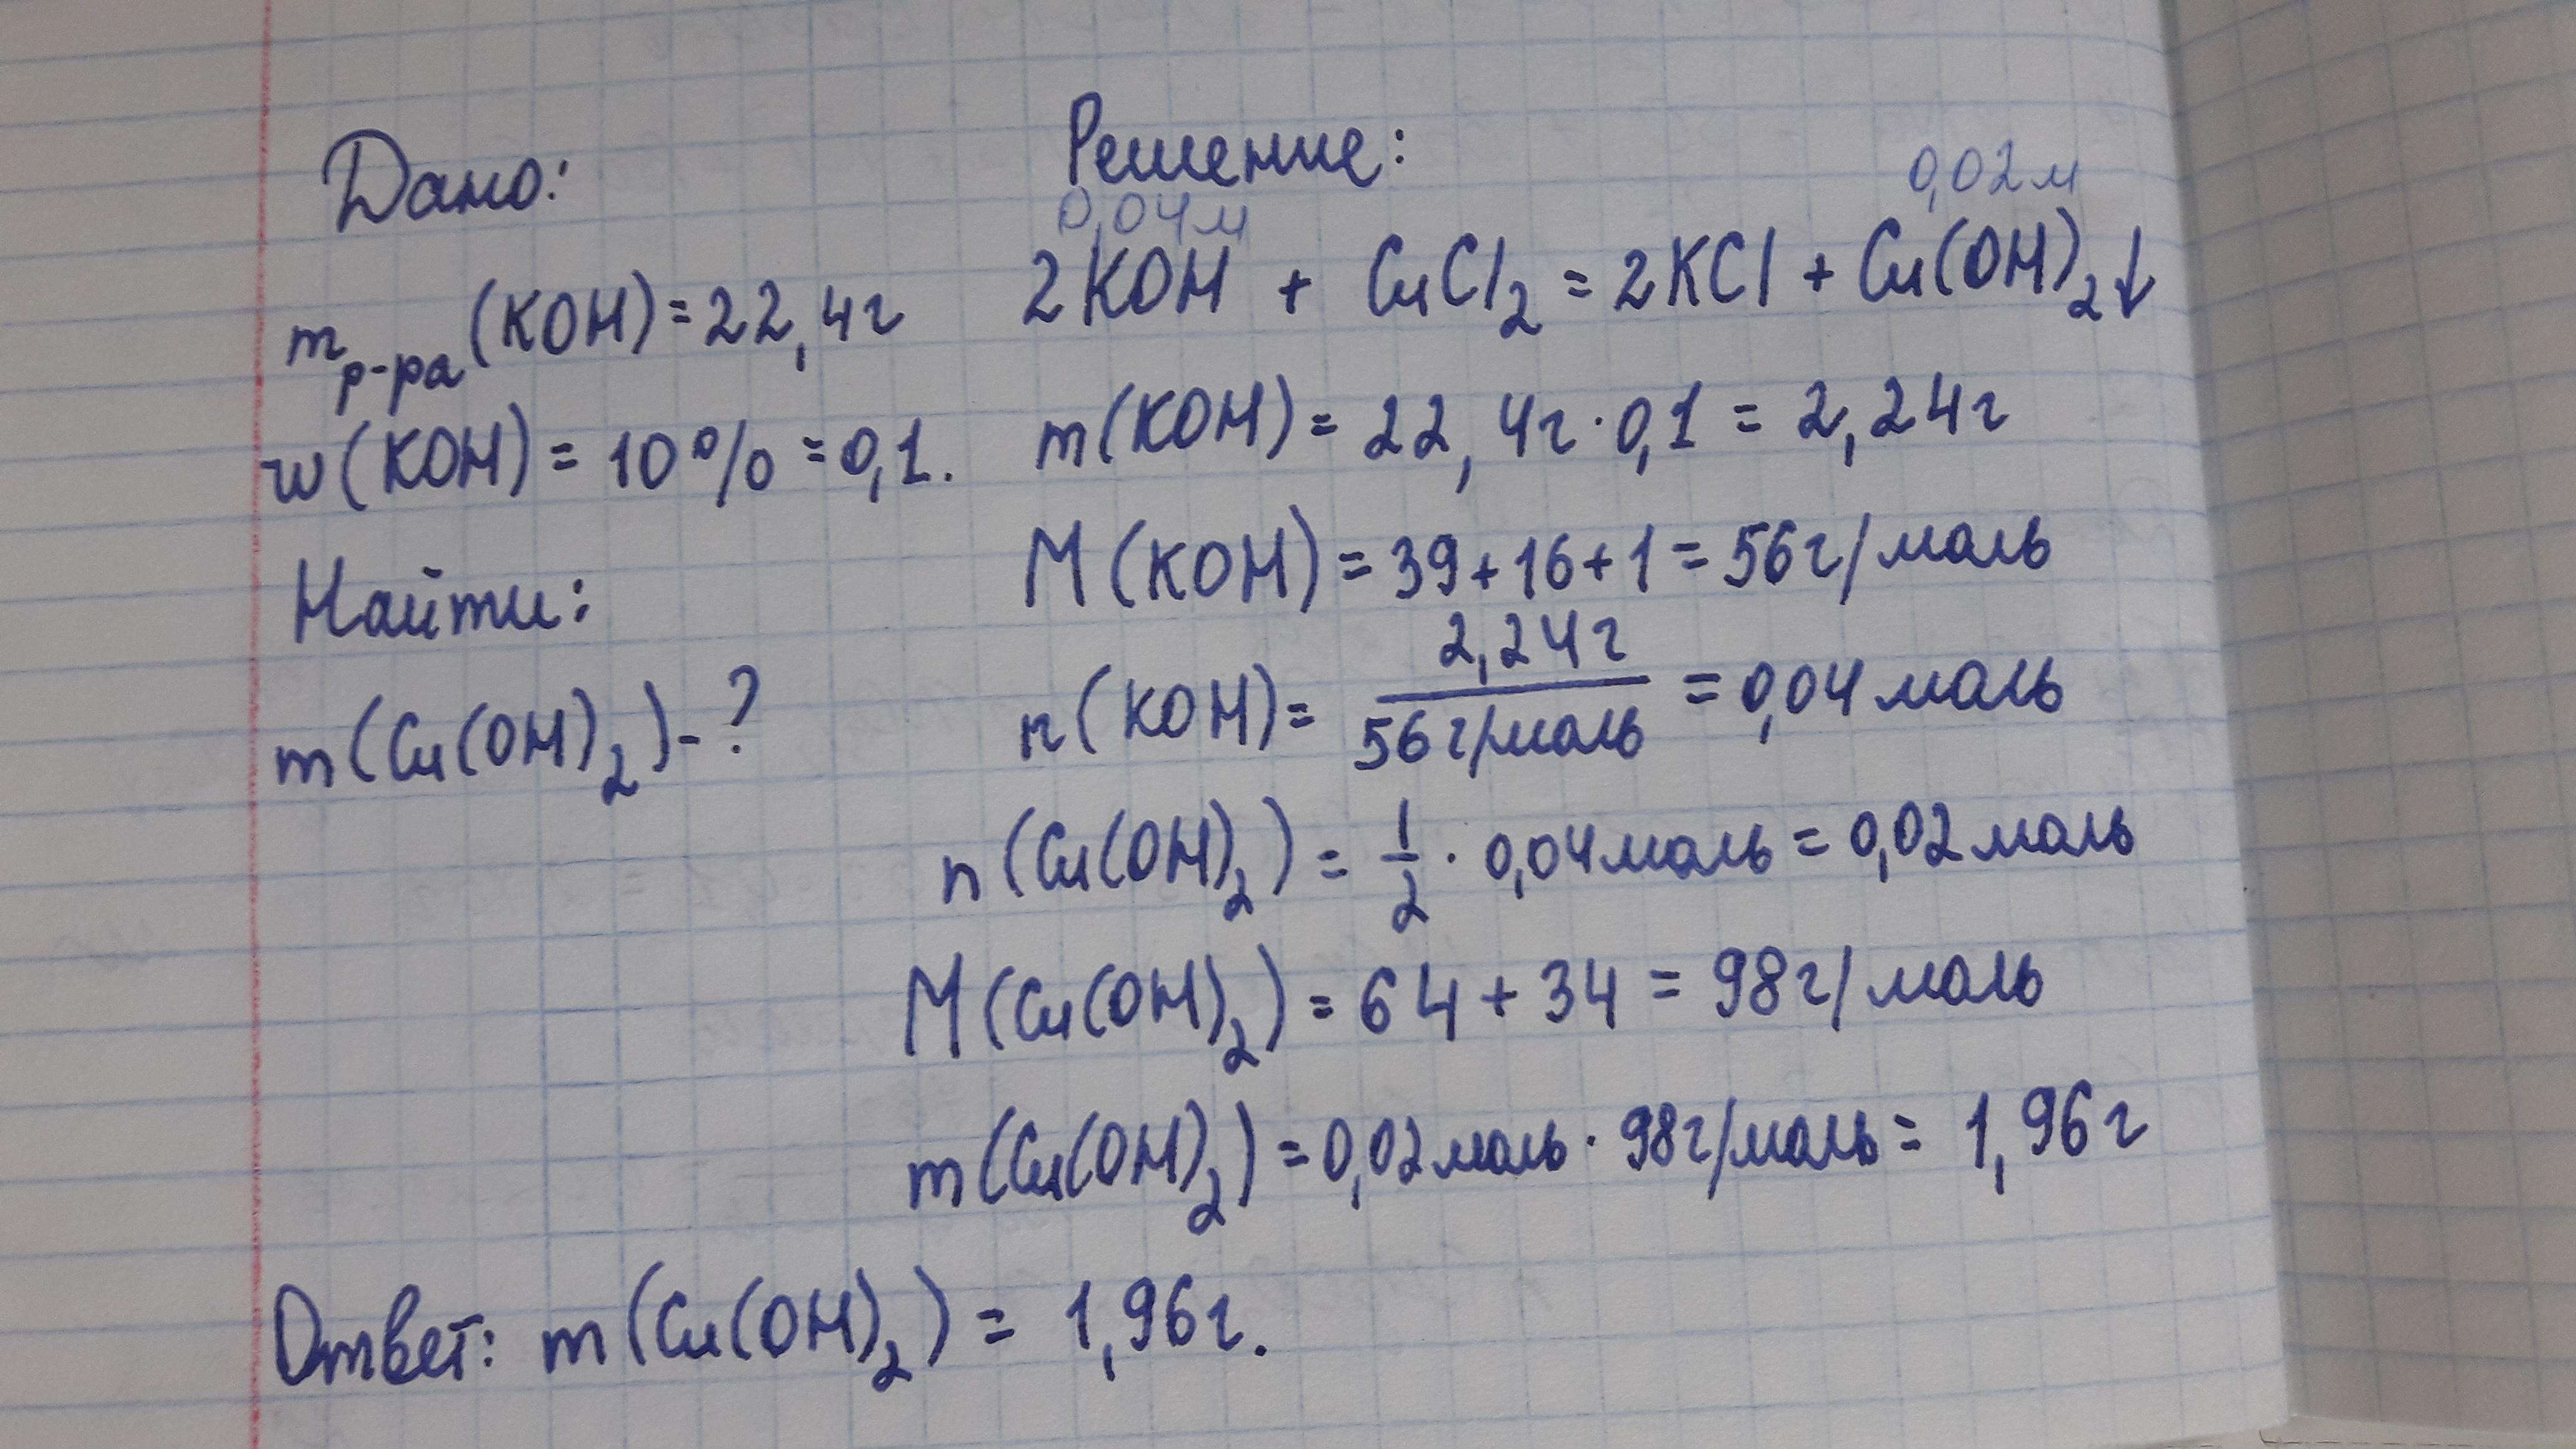 Дано:
m р-ра (KOH) = 22,4г
w (KOH) = 10% = 0,1.
Найти:
m (Cu(OH)₂) - ?
Решение:
0,04м 0,02м
2KOH + CuCl₂ = 2KCl + Cu(OH)₂↓
m(KOH) = 22,4г · 0,1 = 2,24г
M (KOH) = 39 + 16 + 1 = 56г/моль
n (KOH) = 2,24г / 56г/моль = 0,04 моль
n (Cu(OH)₂) = 1/2 · 0,04моль = 0,02 моль
M (Cu(OH)₂) = 64 + 34 = 98г/моль
m (Cu(OH)₂) = 0,02моль · 98г/моль = 1,96г
Ответ: m (Cu(OH)₂) = 1,96г.